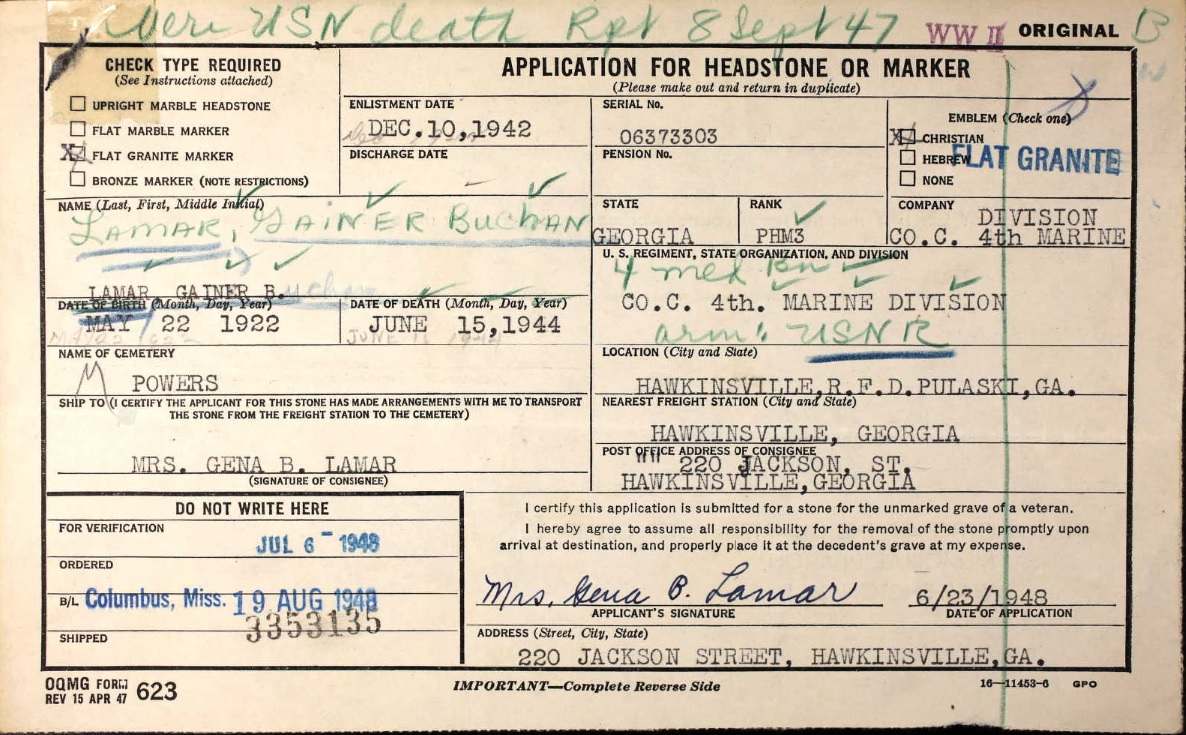 Veri USN death Rpt 8 Sept 47 WW II ORIGINAL B
CHECK TYPE REQUIRED
(See Instructions attached)
UPRIGHT MARBLE HEADSTONE
FLAT MARBLE MARKER
X FLAT GRANITE MARKER
BRONZE MARKER (NOTE RESTRICTIONS)
APPLICATION FOR HEADSTONE OR MARKER
(Please make out and return in duplicate)
ENLISTMENT DATE
DEC.10,1942
DISCHARGE DATE
SERIAL No.
06373303
PENSION No.
EMBLEM (Check one)
X CHRISTIAN
HEBREW
NONE
FLAT GRANITE
NAME (Last, First, Middle Initial)
LAMAR, GAINER BUCHAN
LAMAR GAINER B. uchan
STATE
GEORGIA
RANK
PHM3
COMPANY
DIVISION
CO.C. 4th MARINE
U. S. REGIMENT, STATE ORGANIZATION, AND DIVISION
4 med Bn
CO.C. 4th. MARINE DIVISION
arm: USNR
DATE OF BIRTH (Month, Day, Year)
MAY 22 1922
DATE OF DEATH (Month, Day, Year)
JUNE 15,1944
NAME OF CEMETERY
POWERS
LOCATION (City and State)
HAWKINSVILLE,R.F.D.PULASKI,GA.
SHIP TO (I CERTIFY THE APPLICANT FOR THIS STONE HAS MADE ARRANGEMENTS WITH ME TO TRANSPORT
THE STONE FROM THE FREIGHT STATION TO THE CEMETERY)
MRS. GENA B. LAMAR
(SIGNATURE OF CONSIGNEE)
NEAREST FREIGHT STATION (City and State)
HAWKINSVILLE, GEORGIA
POST OFFICE ADDRESS OF CONSIGNEE
"" 220 JACKSON, ST.
HAWKINSVILLE,GEORGIA
DO NOT WRITE HERE
FOR VERIFICATION
JUL 6 - 1948
ORDERED
B/L Columbus, Miss. 19 AUG 1948
3353135
SHIPPED
I certify this application is submitted for a stone for the unmarked grave of a veteran.
I hereby agree to assume all responsibility for the removal of the stone promptly upon
arrival at destination, and properly place it at the decedent's grave at my expense.
Mrs. Gena B. Lamar 6/23/1948
APPLICANT'S SIGNATURE DATE OF APPLICATION
ADDRESS (Street, City, State)
220 JACKSON STREET, HAWKINSVILLE,GA.
OQMG FORM
REV 15 APR 47 623
IMPORTANT—Complete Reverse Side
16—11453-6 GPO